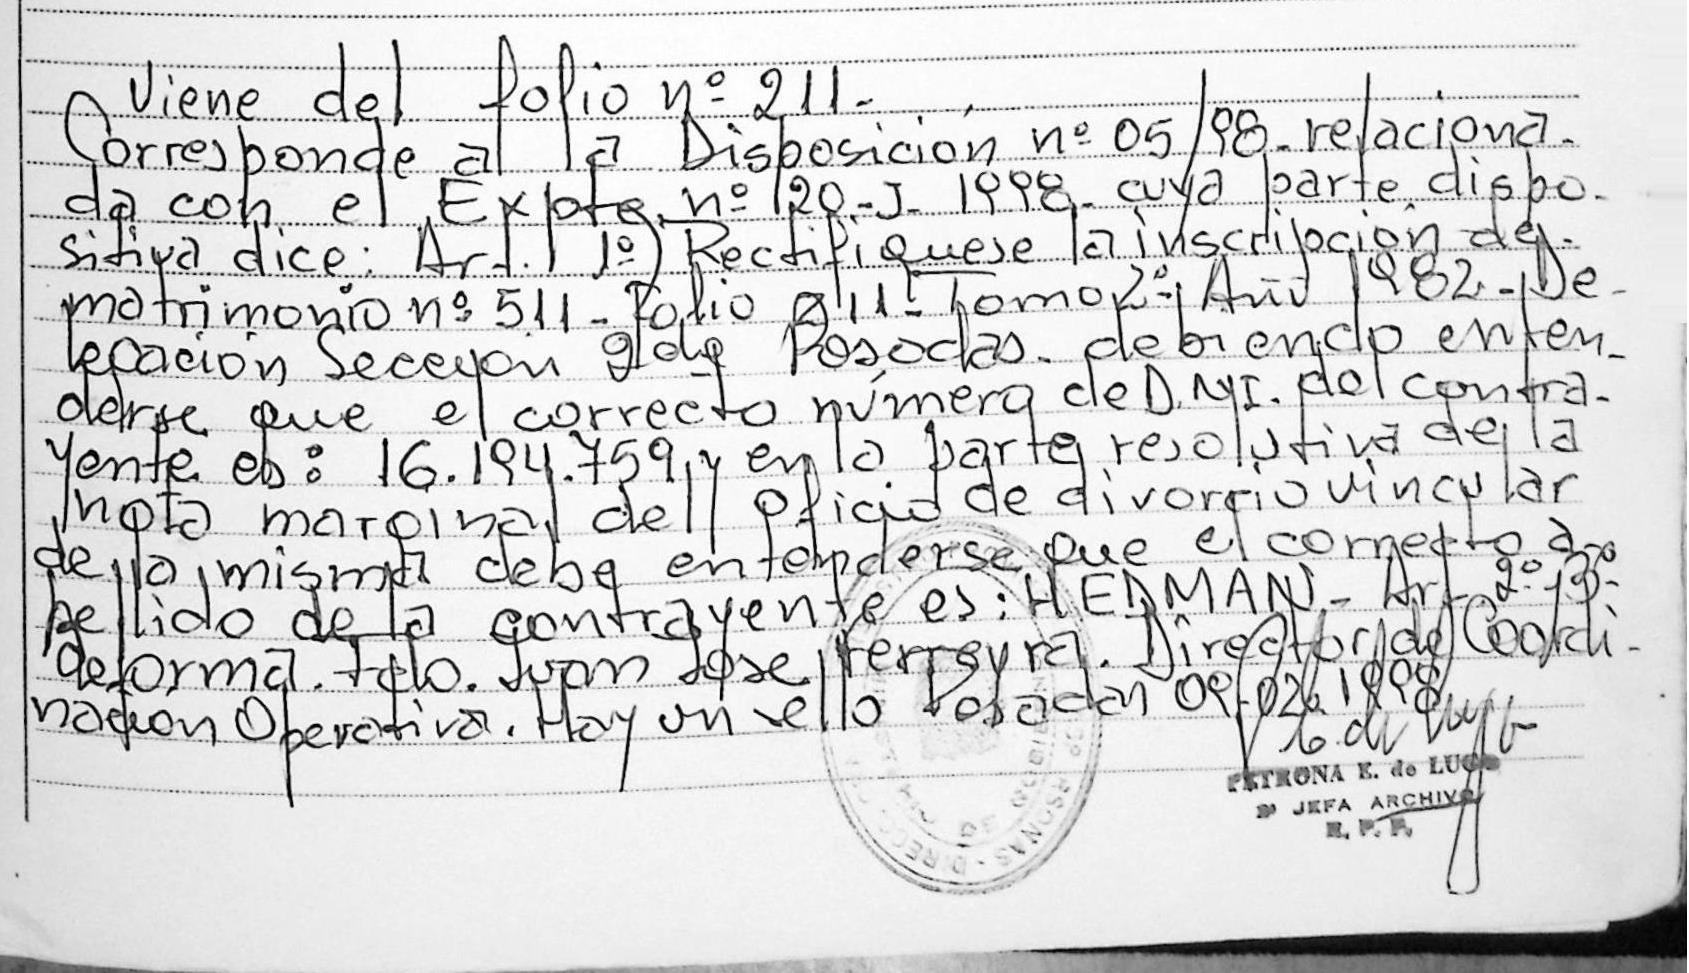 Viene del folio nº 211-
Corresponde a la Disposición nº 05/98- relaciona-
da con el Expte. nº 120-J- 1998- cuya parte dispo-
sitiva dice: Art. 1º) Rectifíquese la inscripción de
matrimonio nº 511- Folio 211- Tomo 2º- Año 1982- De-
legación Seccyon 2da Posadas- debiendo enten-
derse que el correcto número de D.N.I. del contra-
yente es: 16.194.759, y en la parte resolutiva de la
nota marginal del oficio de divorcio vincular
de la misma debe entenderse que el correcto a-
pellido de la contrayente es: HEDMAN- Art 2º- 3º-
de forma. Fdo. Juan Jose Ferreyra. Director de Coordi-
nacion Operativa. Hay un sello Posadas 09-02-1998
PETRONA E. de LUGO
JEFA ARCHIVO
R. P. P.